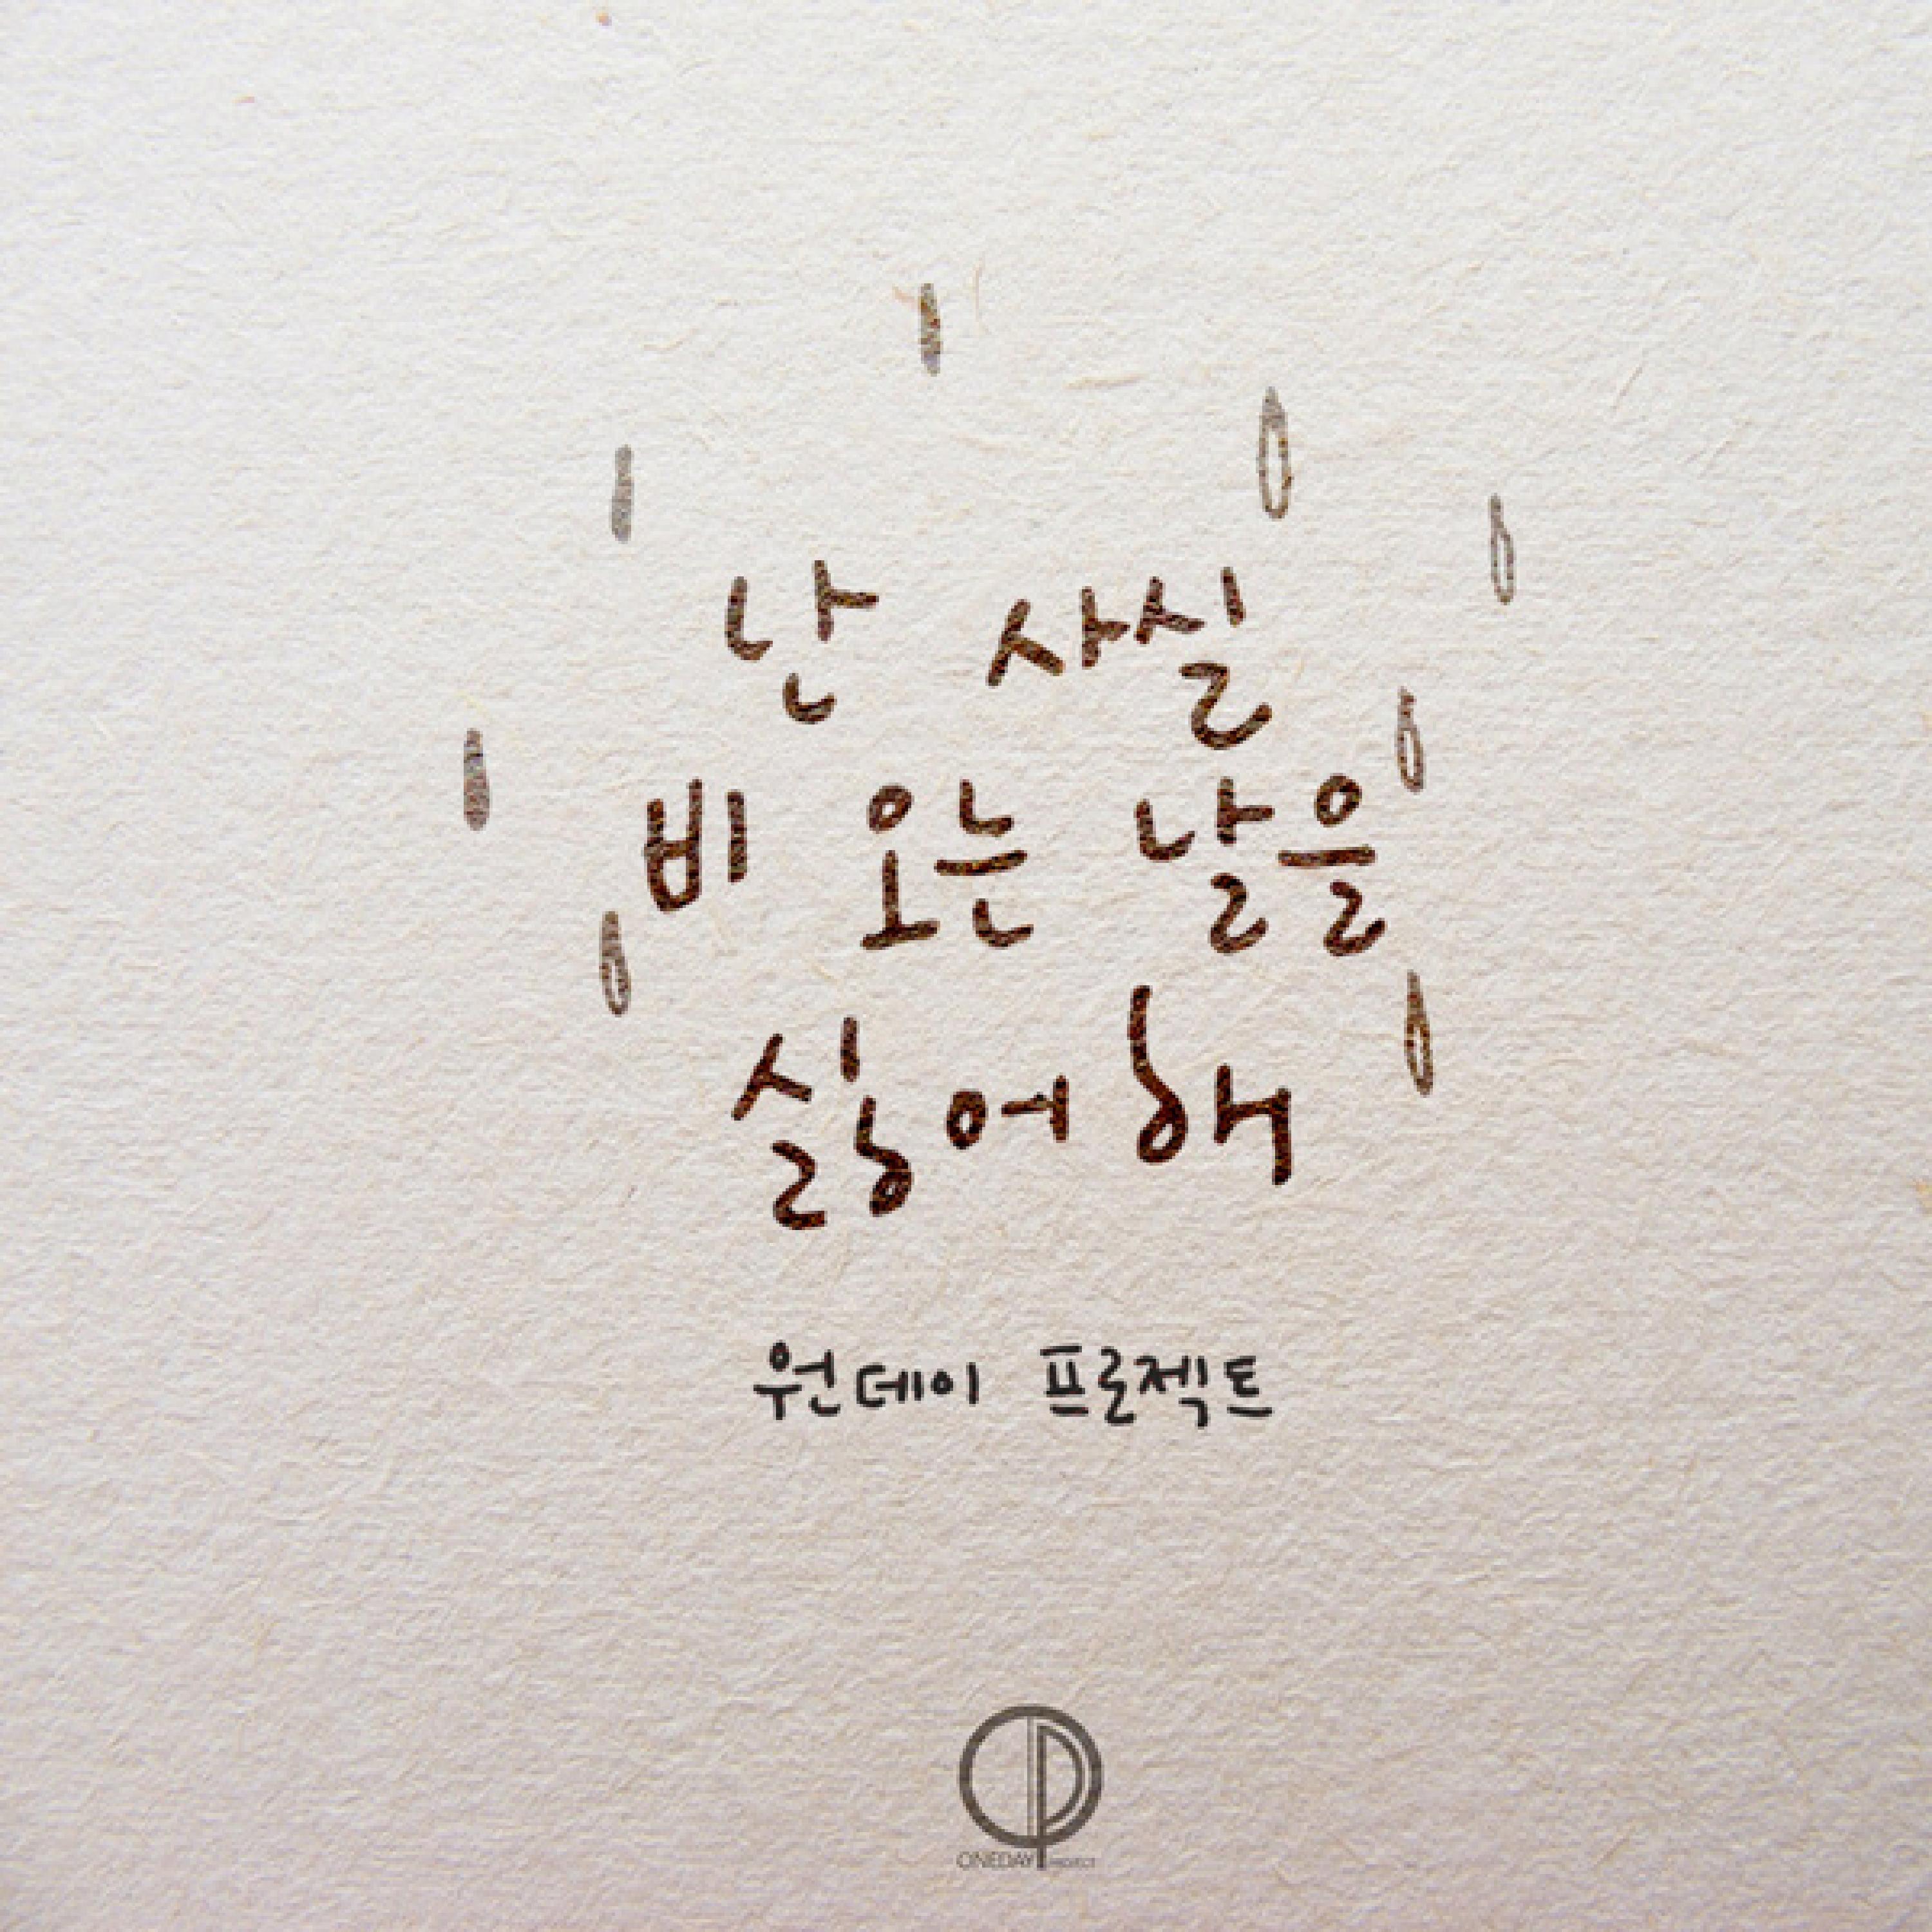 난 사실
비 오는 날을
싫어해
원데이 프로젝트
ONEDAY PROJECT